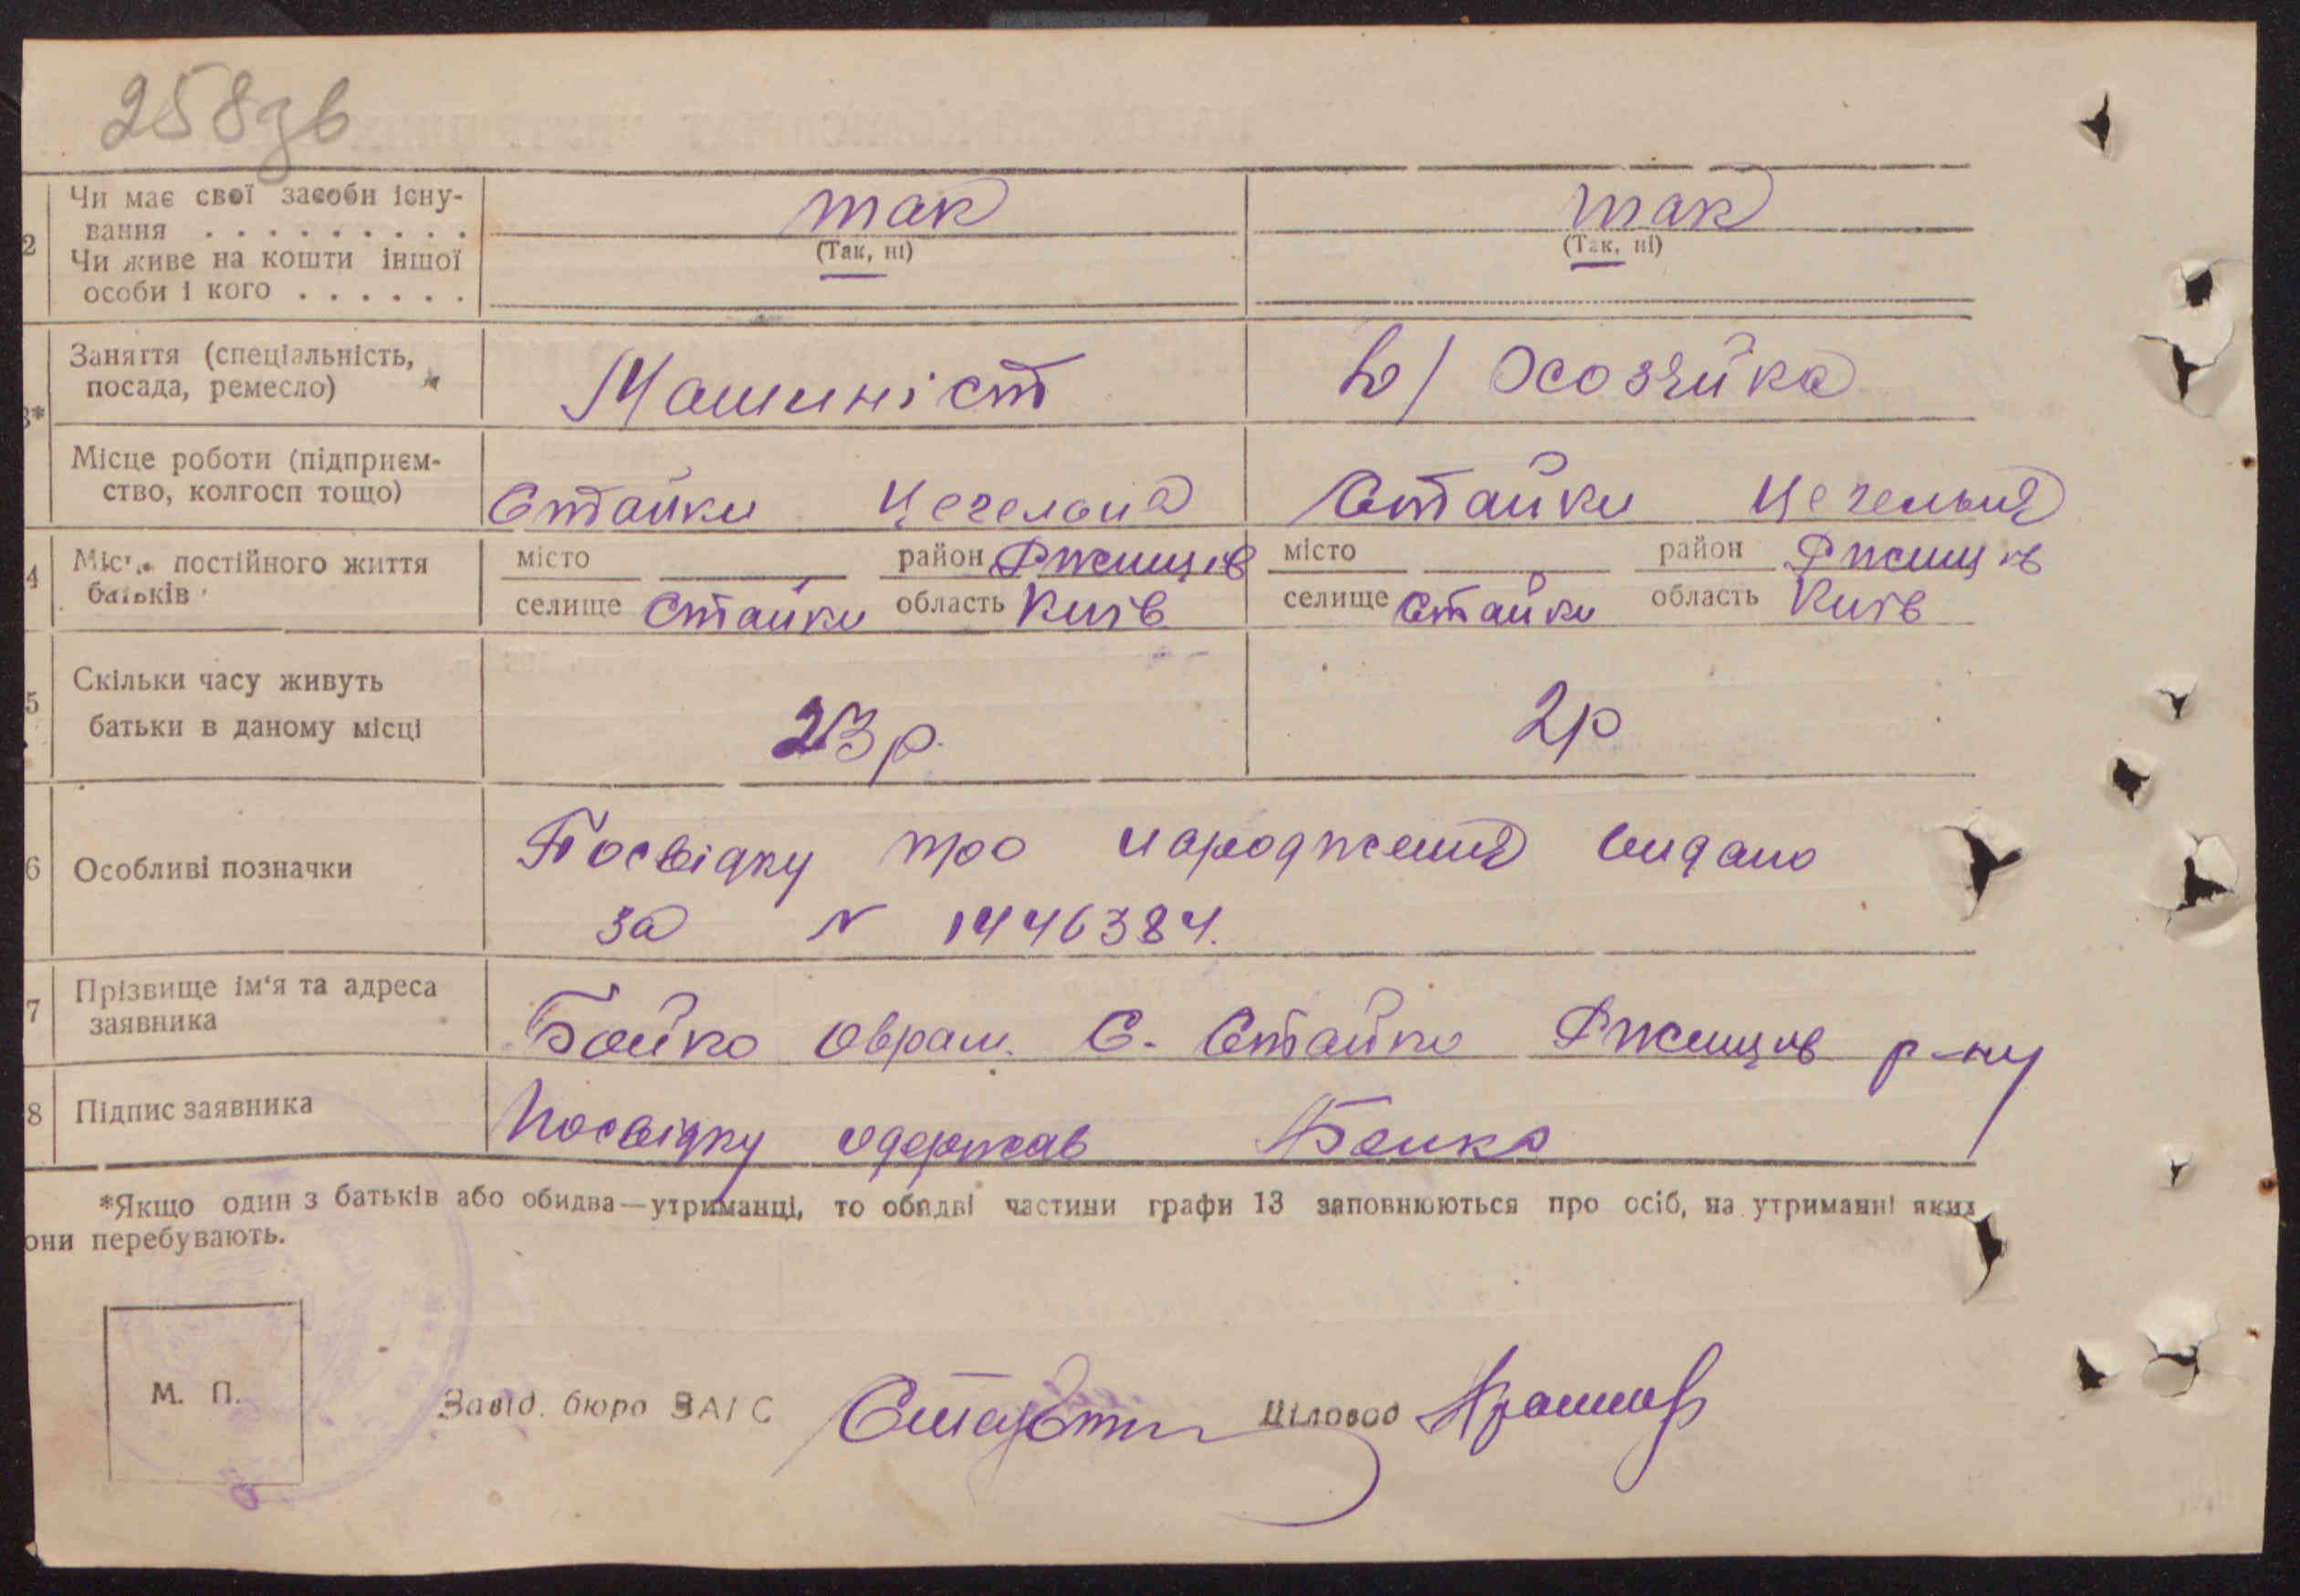 258зв
2 Чи має свої засоби існу- так так
вання . . . . . . . . . (Так, ні) (Так, ні)
Чи живе на кошти іншої
особи і кого . . . . . .
3* Заняття (спеціальність, Машиніст д/ хозяйка
посада, ремесло)
Місце роботи (підприєм- Стайки Цегельня Стайки Цегельня
ство, колгосп тощо)
4 Місце постійного життя місто район Ржищів місто район Ржищів
батьків селище Стайки область Київ селище Стайки область Київ
5 Скільки часу живуть
батьки в даному місці 23 р. 2 р
6 Особливі позначки Посвідку про народження видано
за N 1446384.
7 Прізвище ім'я та адреса
заявника Бойко Оврам. С. Стайки Ржищів р-ну
8 Підпис заявника Посвідку одержав Бойко
*Якщо один з батьків або обидва—утриманці, то обидві частини графи 13 заповнюються про осіб, на утриманні яких
они перебувають.
М. П.
Завід. бюро ЗАГС Діловод